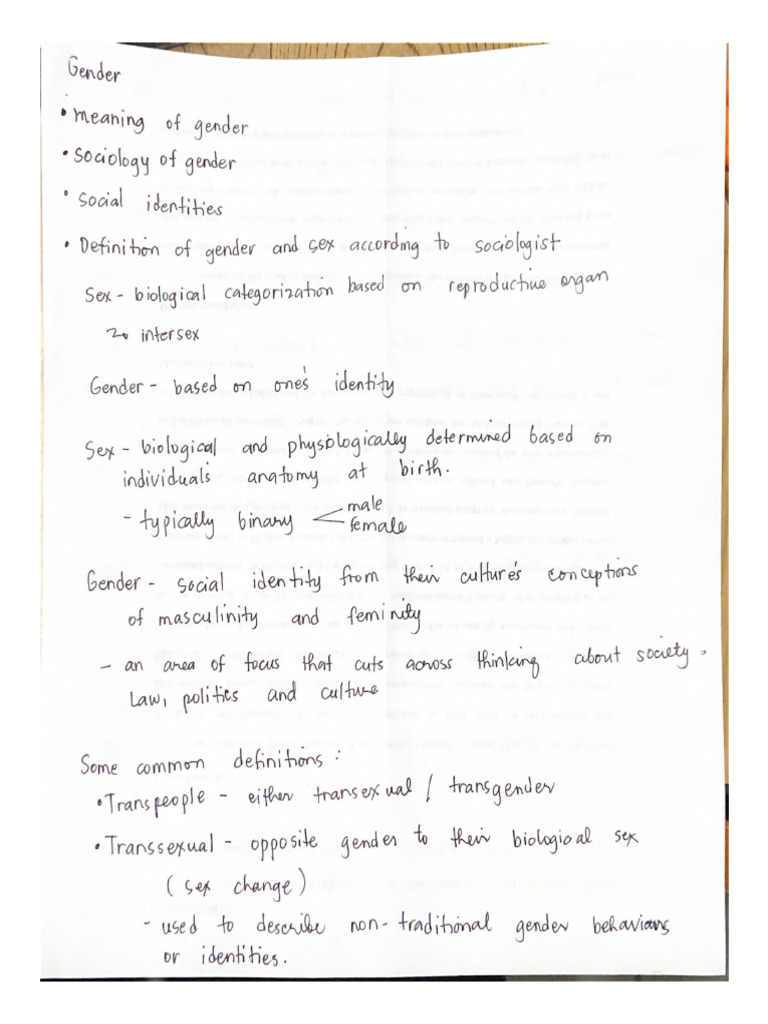 Gender
• meaning of gender
• Sociology of gender
• Social identities
• Definition of gender and sex according to sociologist
Sex - biological categorization based on reproductive organ
intersex
Gender - based on one's identity
Sex - biological and physiologically determined based on
individual's anatomy at birth.
- typically binary
male
female
Gender - social identity from their culture's conceptions
of masculinity and feminity
- an area of focus that cuts across thinking about society,
Law, politics and culture
Some common definitions :
• Transpeople - either transexual / transgender
• Transsexual - opposite gender to their biological sex
(sex change)
- used to describe non-traditional gender behaviours
or identities.